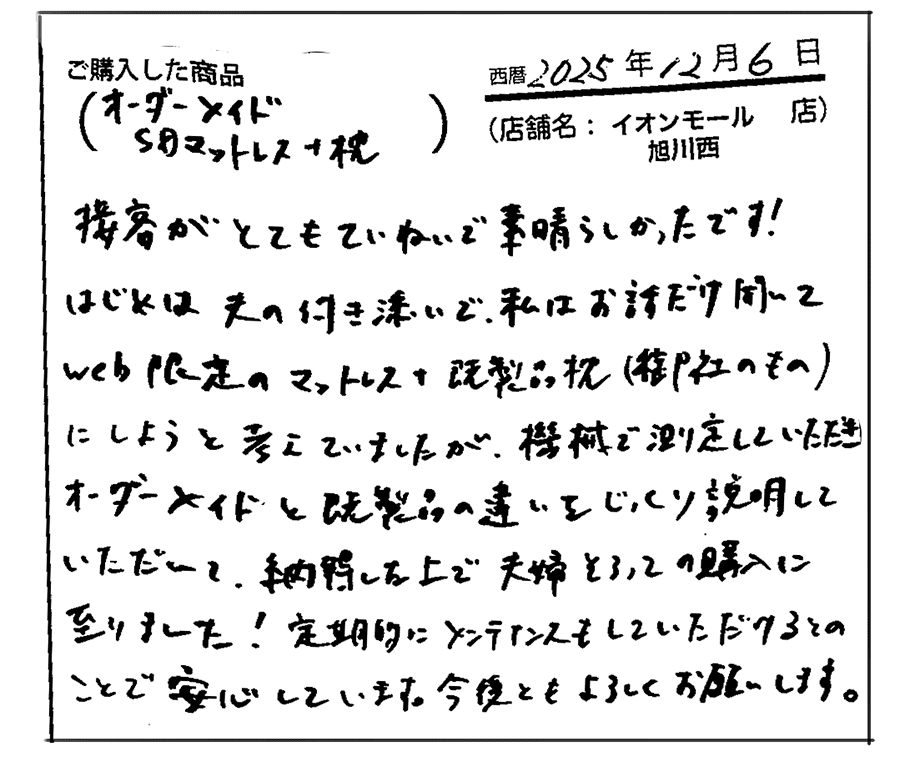 ご購入した商品
西暦2025年12月6日
(オーダーメイド
SBマットレス+枕)
(店舗名：イオンモール 店)
旭川西
接客がとてもていねいで素晴らしかったです!
はじめは夫の付き添いで、私はお話だけ聞いて
web限定のマットレス+既製品枕(御社のもの)
にしようと考えていましたが、機械で測定していただき
オーダーメイドと既製品の違いをじっくり説明して
いただいて、納得した上で夫婦そろっての購入に
至りました!定期的にメンテナンスもしていただけるとの
ことで安心しています。今後ともよろしくお願いします。